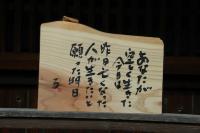 あなたが
空しく生きた
今日は
昨日亡くなった
人が生きたいと
願った明日